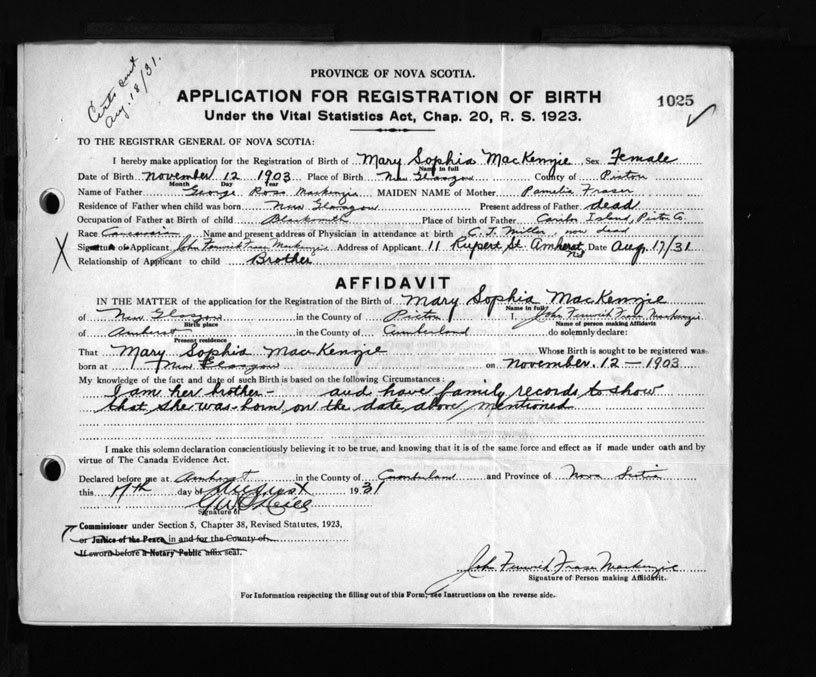 Certs sent
Aug. 18/31.
PROVINCE OF NOVA SCOTIA.
APPLICATION FOR REGISTRATION OF BIRTH
1025
Under the Vital Statistics Act, Chap. 20, R. S. 1923.
TO THE REGISTRAR GENERAL OF NOVA SCOTIA:
I hereby make application for the Registration of Birth of Mary Sophia MacKenzie Sex Female
Name in full
Date of Birth November 12 1903 Place of Birth New Glasgow County of Pictou
Month Day Year
Name of Father George Ross Mackenzie MAIDEN NAME of Mother Pamelia Fraser
Residence of Father when child was born New Glasgow Present address of Father dead
Occupation of Father at Birth of child Blacksmith Place of birth of Father Caribou Island, Pictou Co
Race Name and present address of Physician in attendance at birth C. J. Miller, now dead
Signature of Applicant John Fenwick Fraser Mackenzie Address of Applicant 11 Rupert St. Amherst, NS Date Aug 17/31
Relationship of Applicant to child Brother
AFFIDAVIT
IN THE MATTER of the application for the Registration of the Birth of Mary Sophia MacKenzie
Name in full
of New Glasgow in the County of Pictou I, John Fenwick Fraser Mackenzie
Birth place Name of person making Affidavit
of Amherst in the County of Cumberland do solemnly declare:
Present residence
That Mary Sophia MacKenzie Whose Birth is sought to be registered was
born at New Glasgow on November. 12 - 1903
My knowledge of the fact and date of such Birth is based on the following Circumstances:
I am her brother - and have family records to show
that she was born on the date above mentioned
I make this solemn declaration conscientiously believing it to be true, and knowing that it is of the same force and effect as if made under oath and by
virtue of The Canada Evidence Act.
Declared before me at Amherst in the County of Cumberland and Province of Nova Scotia
this 17th day of August 1931
Signature of
Commissioner under Section 5, Chapter 38, Revised Statutes, 1923,
or Justice of the Peace in and for the County of
If sworn before a Notary Public affix seal.
John Fenwick Fraser Mackenzie
Signature of Person making Affidavit.
For Information respecting the filling out of this Form, see Instructions on the reverse side.